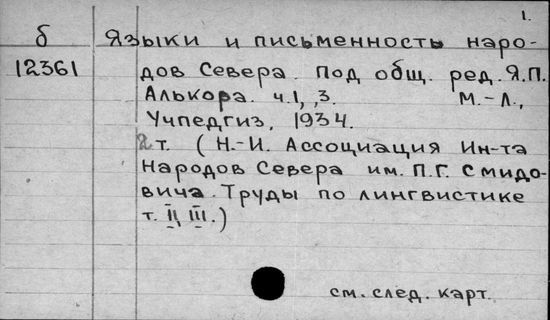 1.
б Языки и письменность наро-
12361 дов Севера. Под общ. ред. Я.П.
Алькора. ч.1, ,3. М.-Л.,
Учпедгиз, 1934.
2 т. (Н.-И. Ассоциация Ин-та
Народов Севера им. П.Г. Смидо-
вича. Труды по лингвистике
т. II, III.)
см. след. карт.